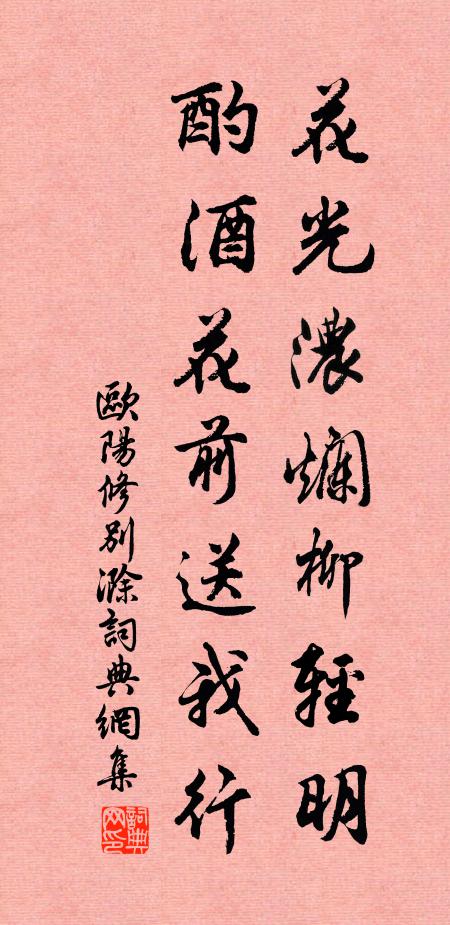 花光濃爛柳輕明
酌酒花前送我行
歐陽修別滁詞典網集
詞典
网印